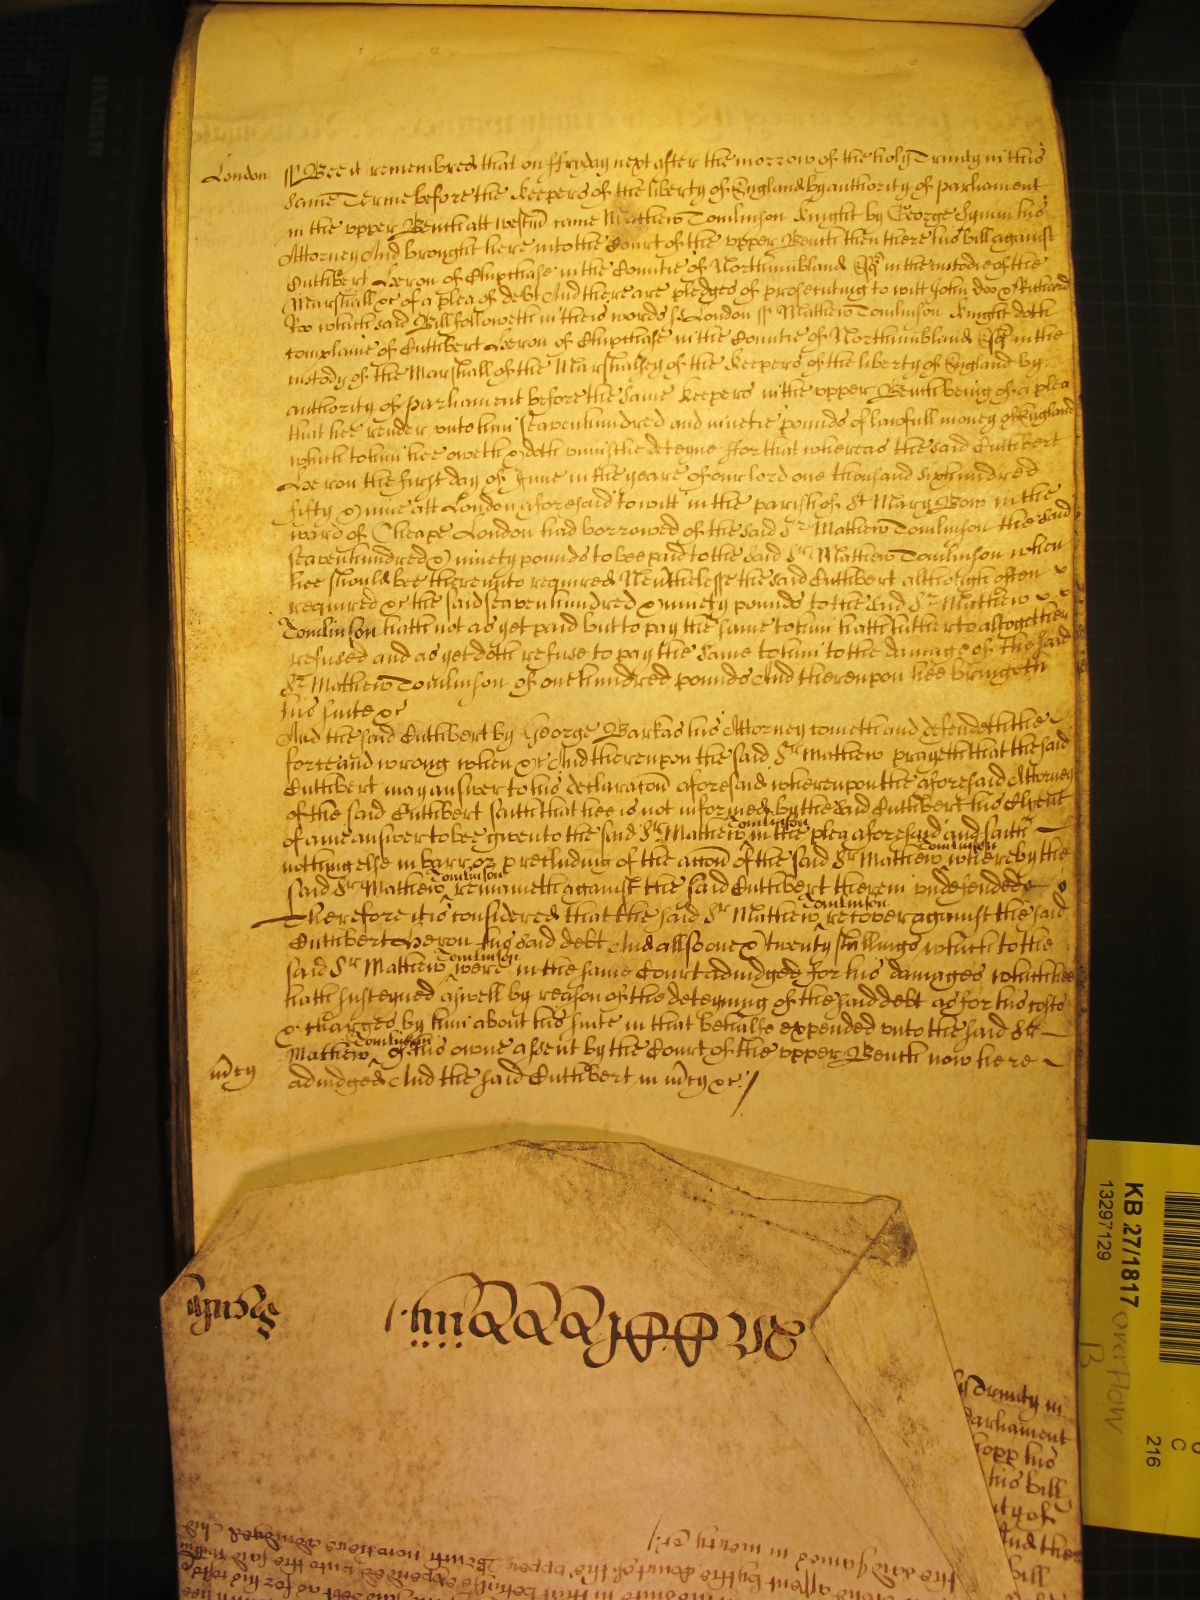 London ss Bee it remembred that on ffryday next after the morrow of the holy Trinity in this
same Terme before the Keepers of the liberty of England by authority of parliament
in the upper Bench att Westm̄ came Mathew Tomlinson Knight by George Symm his
Attorney And brought here into the Court of the upper Bench then there his bill against
Cuthbert Heron of Chipchase in the Countie of Northumbland Esqr in the custodie of the
Marshall &c of a plea of debt And there are pledges of prosecuting to witt John Doo & Richard
Roo which said Bill followeth in theis words ss London ss Mathew Tomlinson Knight doth
complaine of Cuthbert Heron of Chipchase in the Countie of Northumbland Esqr in the
custody of the Marshall of the Marshalsey of the Keepers of the liberty of England by
authority of parliament before the same Keepers in the upper Bench being of a plea
that hee render unto him seavenhundred and ninetie pounds of lawfull money of England
which to him hee oweth & doth uniustlie deteyne ffor that whereas the said Cuthbert
Heron the first day of June in the yeare of our lord one thousand sixhundred
fifty & nine att London aforesaid to witt in the parish of St Mary Bow in the
ward of Cheape London had borrowed of the said Sr Mathew Tomlinson the said
seavenhundred & ninety pounds to bee paid to the said Sr Mathew Tomlinson when
hee should bee thereunto required Nevthelesse the said Cuthbert although often
required &c the said seavenhundred & ninety pounds to the said Sr Mathew
Tomlinson hath not as yet paid but to pay the same to him hath hitherto altogether
refused and as yet doth refuse to pay the same to him to the damage of the said
Sr Mathew Tomlinson of one hundred pounds And thereupon hee bringeth
his suite &c
And the said Cuthbert by George Barkas his Attorney cometh and defendeth the
force and wrong when &c And thereupon the said Sr Mathew prayeth that the said
Cuthbert may answer to his declaracōn aforesaid whereupon the aforesaid Attorney
of the said Cuthbert saith that hee is not informed by the said Cuthbert his Clyent
of anie answer to bee given to the said Sr Mathew Tomlinson in the plea aforesaid and saith
nothing else in barr or precluding of the accōn of the said Sr Mathew Tomlinson whereby the
said Sr Mathew Tomlinson remaineth against the said Cuthbert therein undefended
Therefore it is considered that the said Sr Mathew Tomlinson recover against the said
Cuthbert Heron his said debt And allsoe one & twenty shillings which to the
said Sr Mathew Tomlinson were in the same Court adiudged for his damages which hee
hath susteyned aswell by reason of the deteyning of the said debt as for his costs
& charges by him about his suite in that behalfe expended unto the said Sr
Mathew Tomlinson of his owne assent by the Court of the upper Bench now here
m̄cy adiudged And the said Cuthbert in m̄cy &c
KB 27/1817
13297129
overflow
B
216
C
Trinity in
Parliament
his
his bill
ity of
And the
bill
the said James in mercy &c